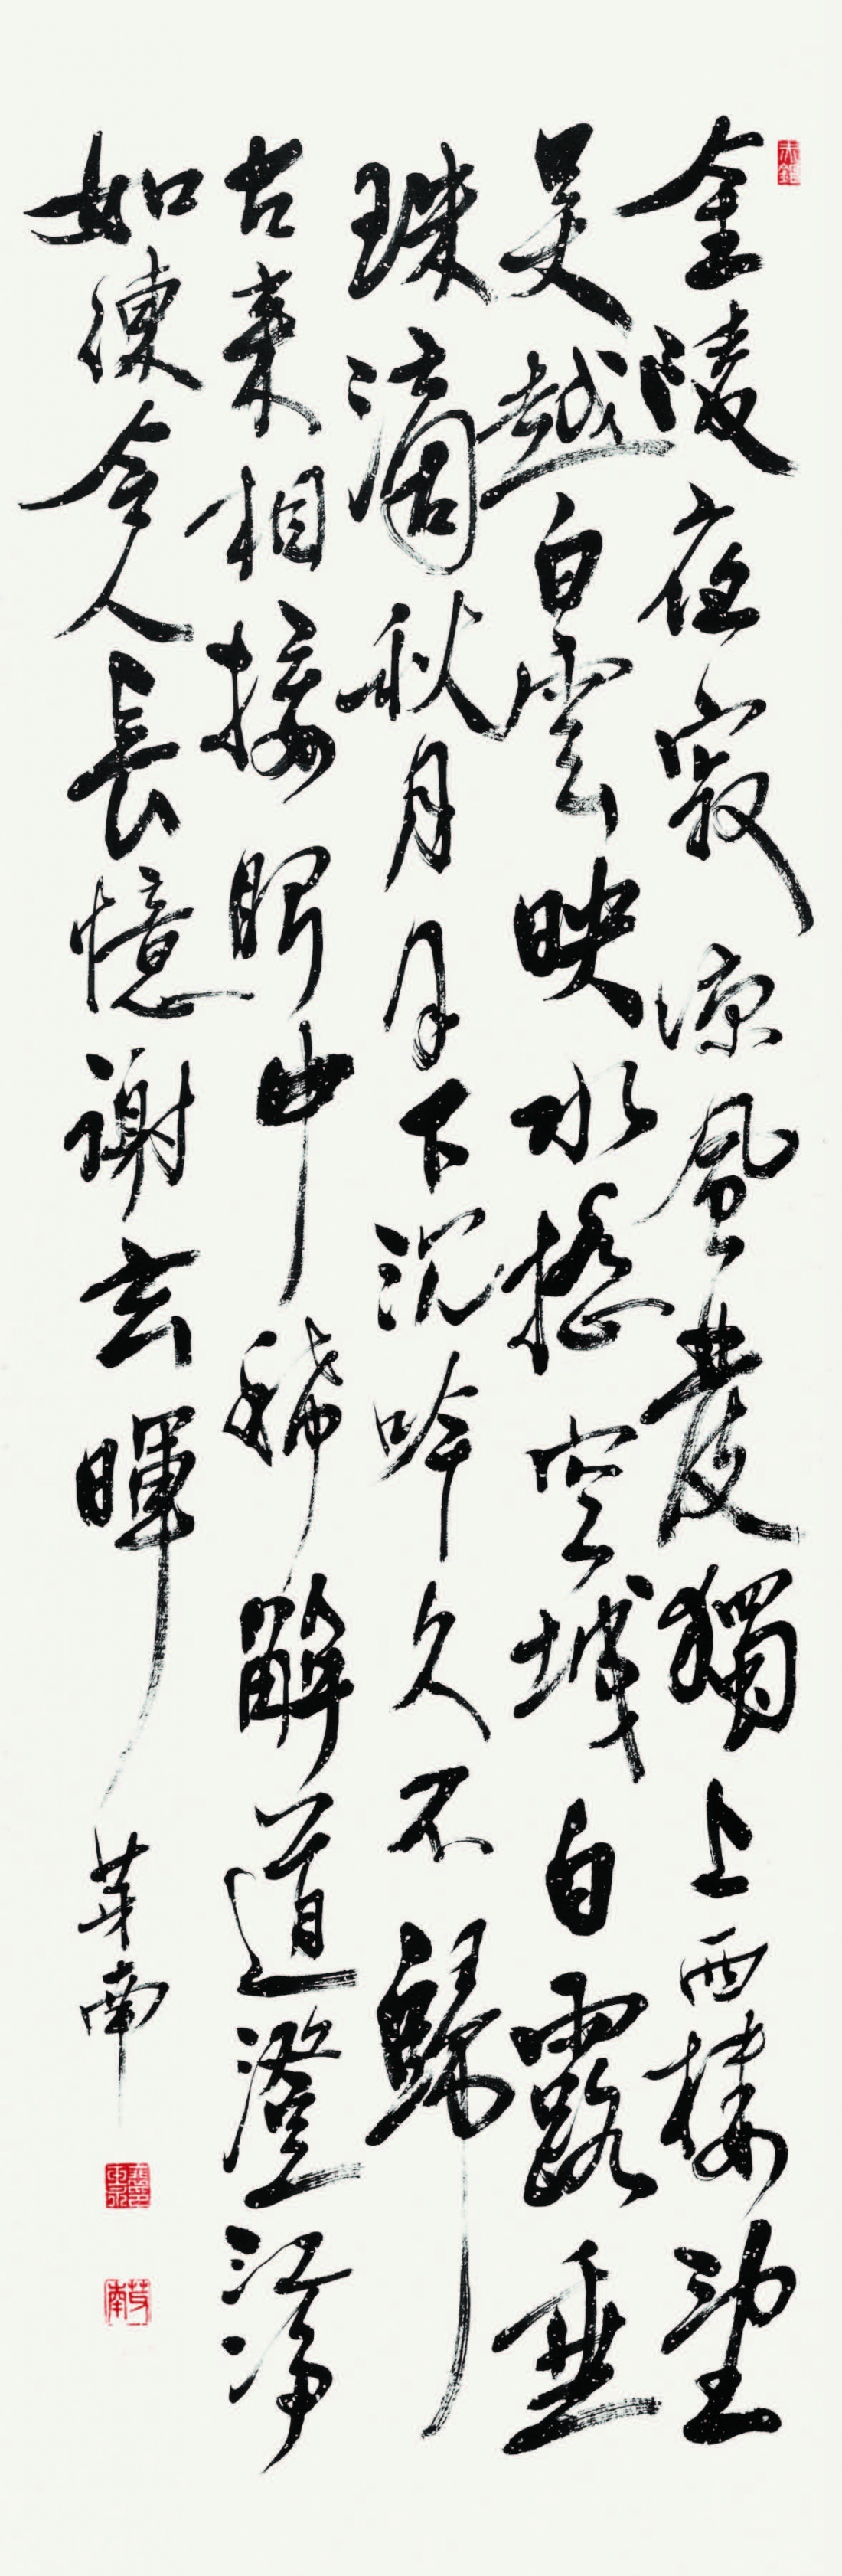 金陵夜寂涼風發獨上西樓望
吳越白雲映水搖空城白露垂
珠滴秋月月下沉吟久不歸
古來相接眼中稀解道澄江淨
如練令人長憶謝玄暉
南